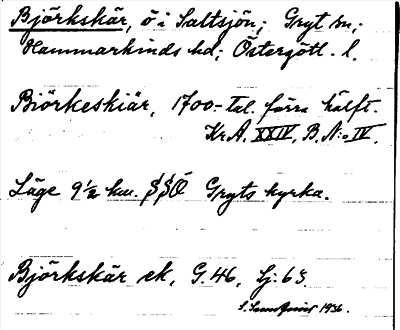 Björkskär, ö i Saltsjön; Gryt sn;
Hammarkinds hd; Östergötl. l.
Biörkeskiär, 1700-tal. förra hälft.
Kr.A. XXIV, B. N:o IV.
Läge 9 1/2 km. SSÖ Gryts kyrka.
Björkskär ek, G. 46, Lj: 63
1936.